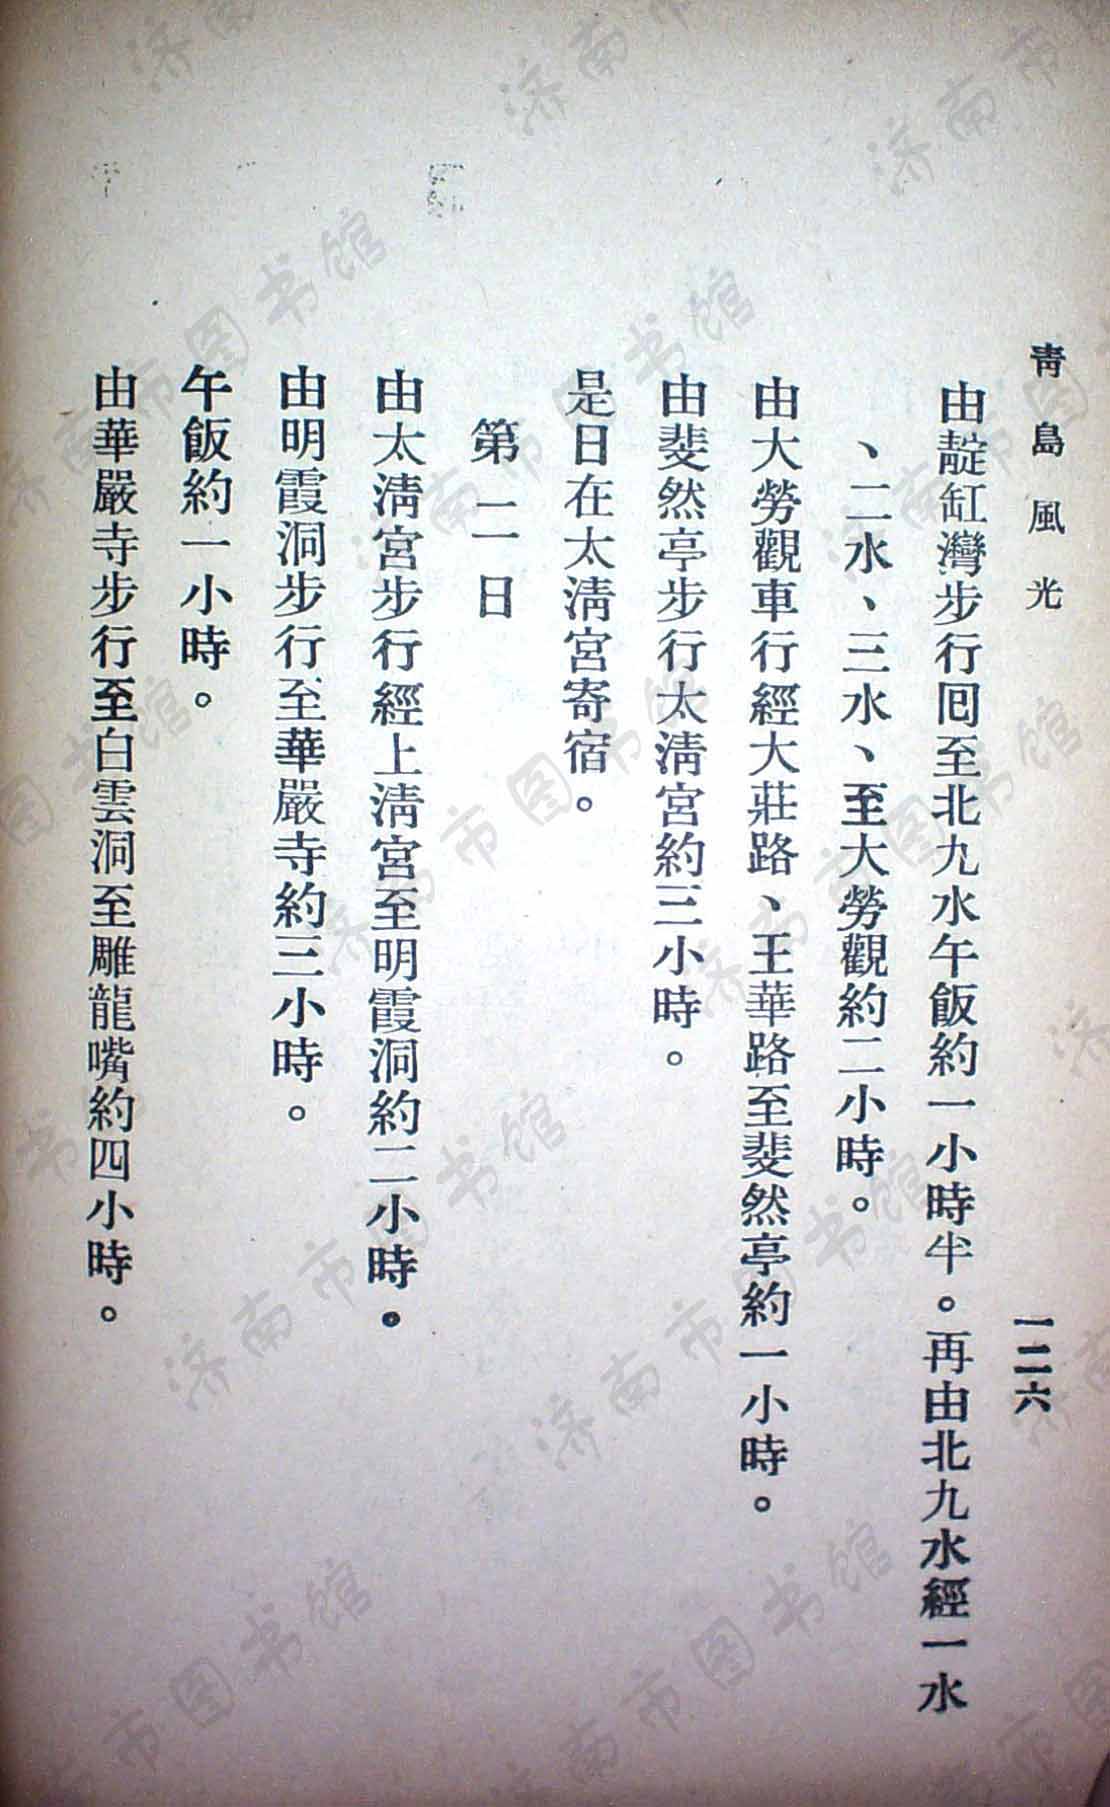 青島風光
一二六
由靛缸灣步行囘至北九水午飯約一小時半。再由北九水經一水
、二水、三水、至大勞觀約二小時。
由大勞觀車行經大莊路、王華路至斐然亭約一小時。
由斐然亭步行太淸宮約三小時。
是日在太淸宮寄宿。
第二日
由太淸宮步行經上淸宮至明霞洞約二小時。
由明霞洞步行至華嚴寺約三小時。
午飯約一小時。
由華嚴寺步行至白雲洞至雕龍嘴約四小時。
济南市图书馆